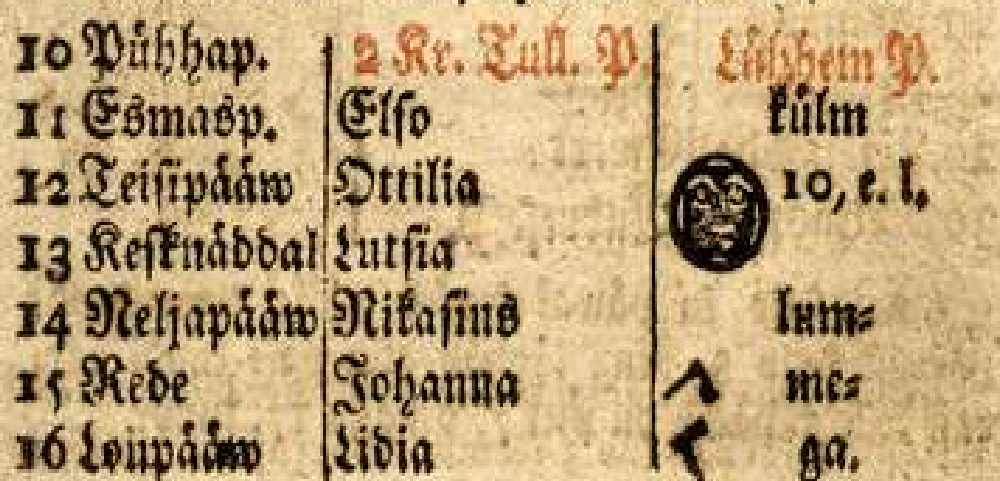 10 Pühhap. 2 Kr. Tull. P. P.
11 Esmasp. Elso külm
12 Teisipääw Ottilia 10, e. l.
13 Kesknäddal Lutsia
14 Neljapääw Nikasius lum-
15 Rede Johanna me-
16 Loupääw Lidia ga.